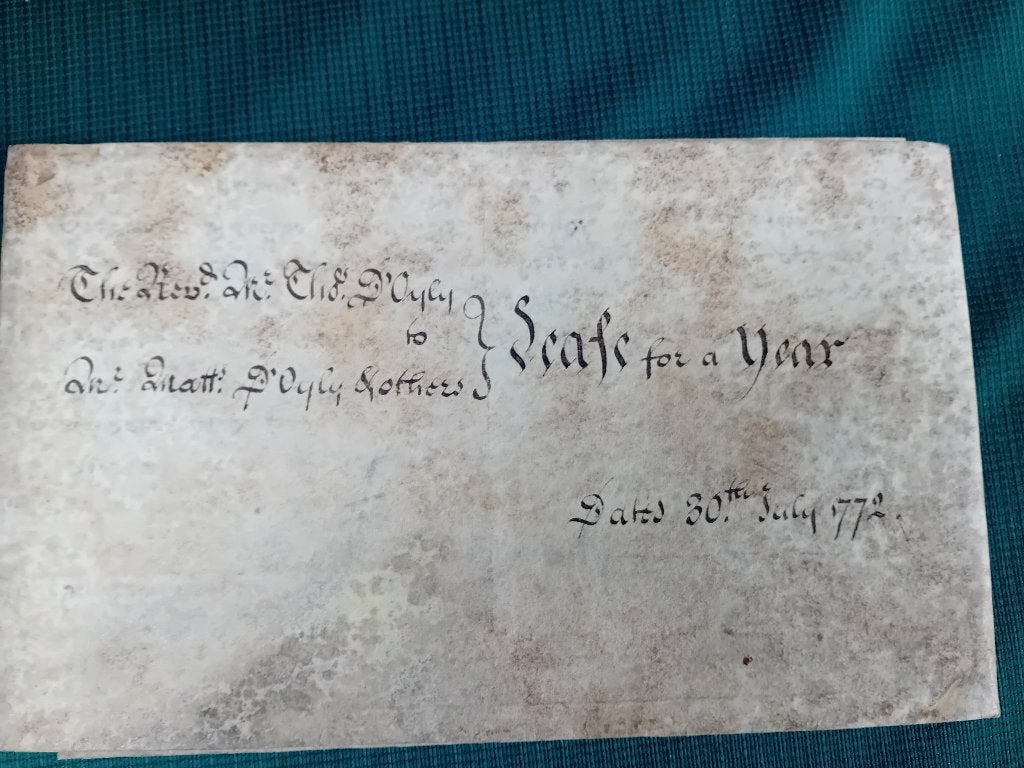 The Revd. Mr. Thos. D'Oyly
to
Mr. Matts. D'Oyly & others
Lease for a Year
Dated 30th. July 1772.